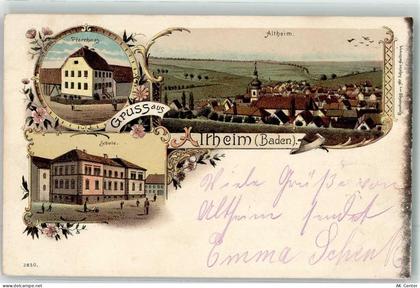 Pfarrhaus.
Altheim.
Gruss aus
Altheim (Baden).
Schule.
Viele Grüße von
Altheim sendet
Emma Schenk
2850.
AK Center